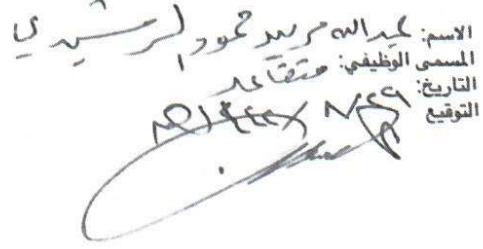 الاسم: عبدالله مرييد حمود الرشيدي
المسمى الوظيفي: متقاعد
التاريخ:
التوقيع